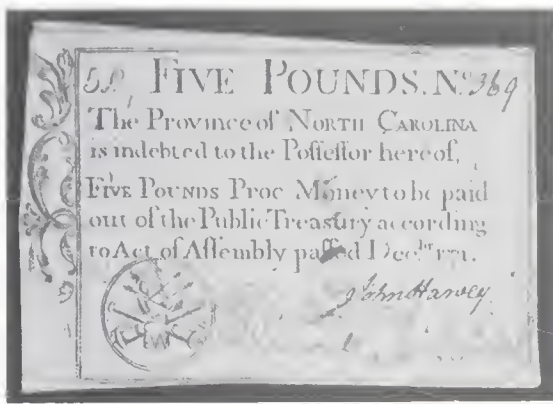 5£ FIVE POUNDS. No. 369
The Province of NORTH CAROLINA
is indebted to the Poſſeſſor hereof,
FIVE POUNDS Proc Money to be paid
out of the Public Treasury according
to Act of Aſſembly paſſed Decbr. 1771.
John Harvey